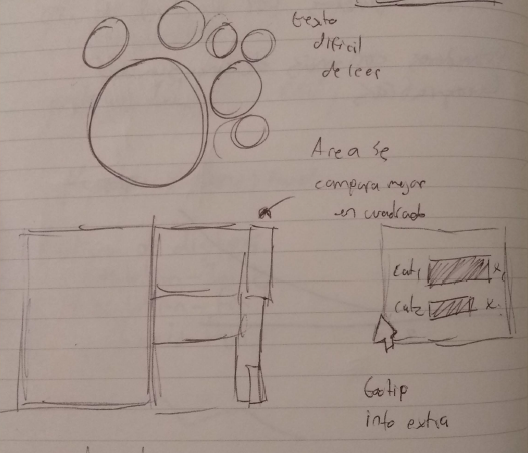 texto
dificil
de leer
Area se
compara mejor
en cuadrado
cat1
cat2
info extra